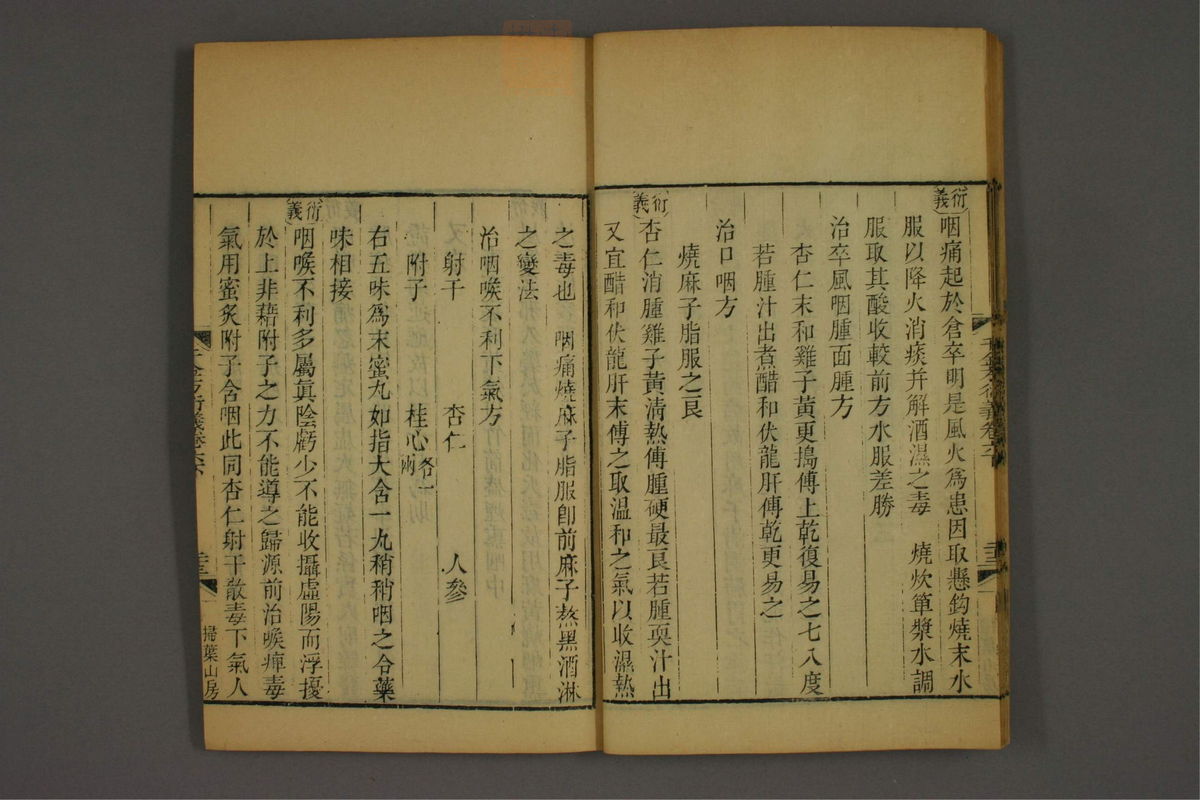 衍義咽痛起於倉卒明是風火為患因取懸鈎燒末水
服以降火消痰并解酒濕之毒　燒炊箄漿水調
服取其酸收較前方水服差勝
治卒風咽腫面腫方
杏仁末和雞子黃更搗傅上乾復易之七八度
若腫汁出煮醋和伏龍肝傅乾更易之
治口咽方
燒麻子脂服之良
衍義杏仁消腫雞子黃清熱傅腫硬最良若腫耎汁出
又宜醋和伏龍肝末傅之取溫和之氣以收濕熱
之毒也　咽痛燒麻子脂服卽前麻子熬黑酒淋
之變法
治咽喉不利下氣方
又射干　杏仁　人參
附子　桂心各一兩
右五味為末蜜丸如指大含一丸稍稍咽之令藥
味相接
衍義咽喉不利多屬眞陰虧少不能收攝虛陽而浮擾
於上非藉附子之力不能導之歸源前治喉痺毒
氣用蜜炙附子含咽此同杏仁射干散毒下氣人
千金方衍義卷六下
三三
掃葉山房